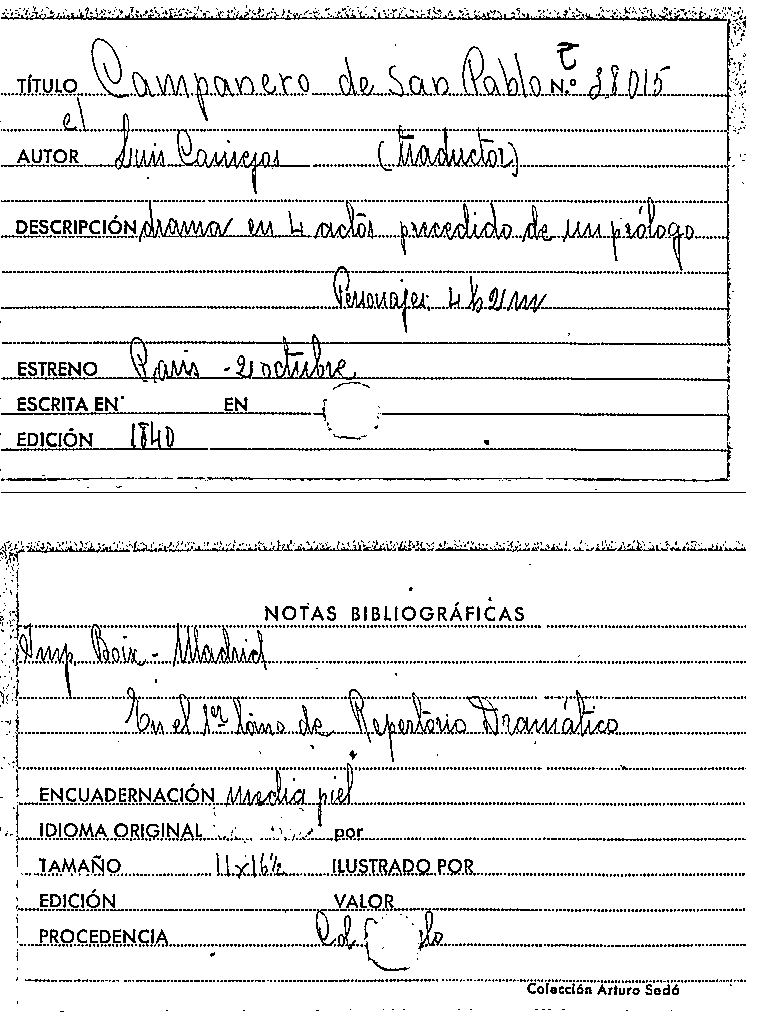 TÍTULO Campanero de San Pablo N.º 38015
el
AUTOR Luis (traductor)
DESCRIPCIÓN drama en 4 actos precedido de un prólogo
Personajes 4 h 2 m
ESTRENO Paris - 2 octubre
ESCRITA EN EN
EDICIÓN 1840
NOTAS BIBLIOGRÁFICAS
Imp. Boix - Madrid
En el 1er tomo de Repertorio Dramático
ENCUADERNACIÓN media piel
IDIOMA ORIGINAL por
TAMAÑO 11x16½ ILUSTRADO POR
EDICIÓN VALOR
PROCEDENCIA
Colección Arturo Sedó